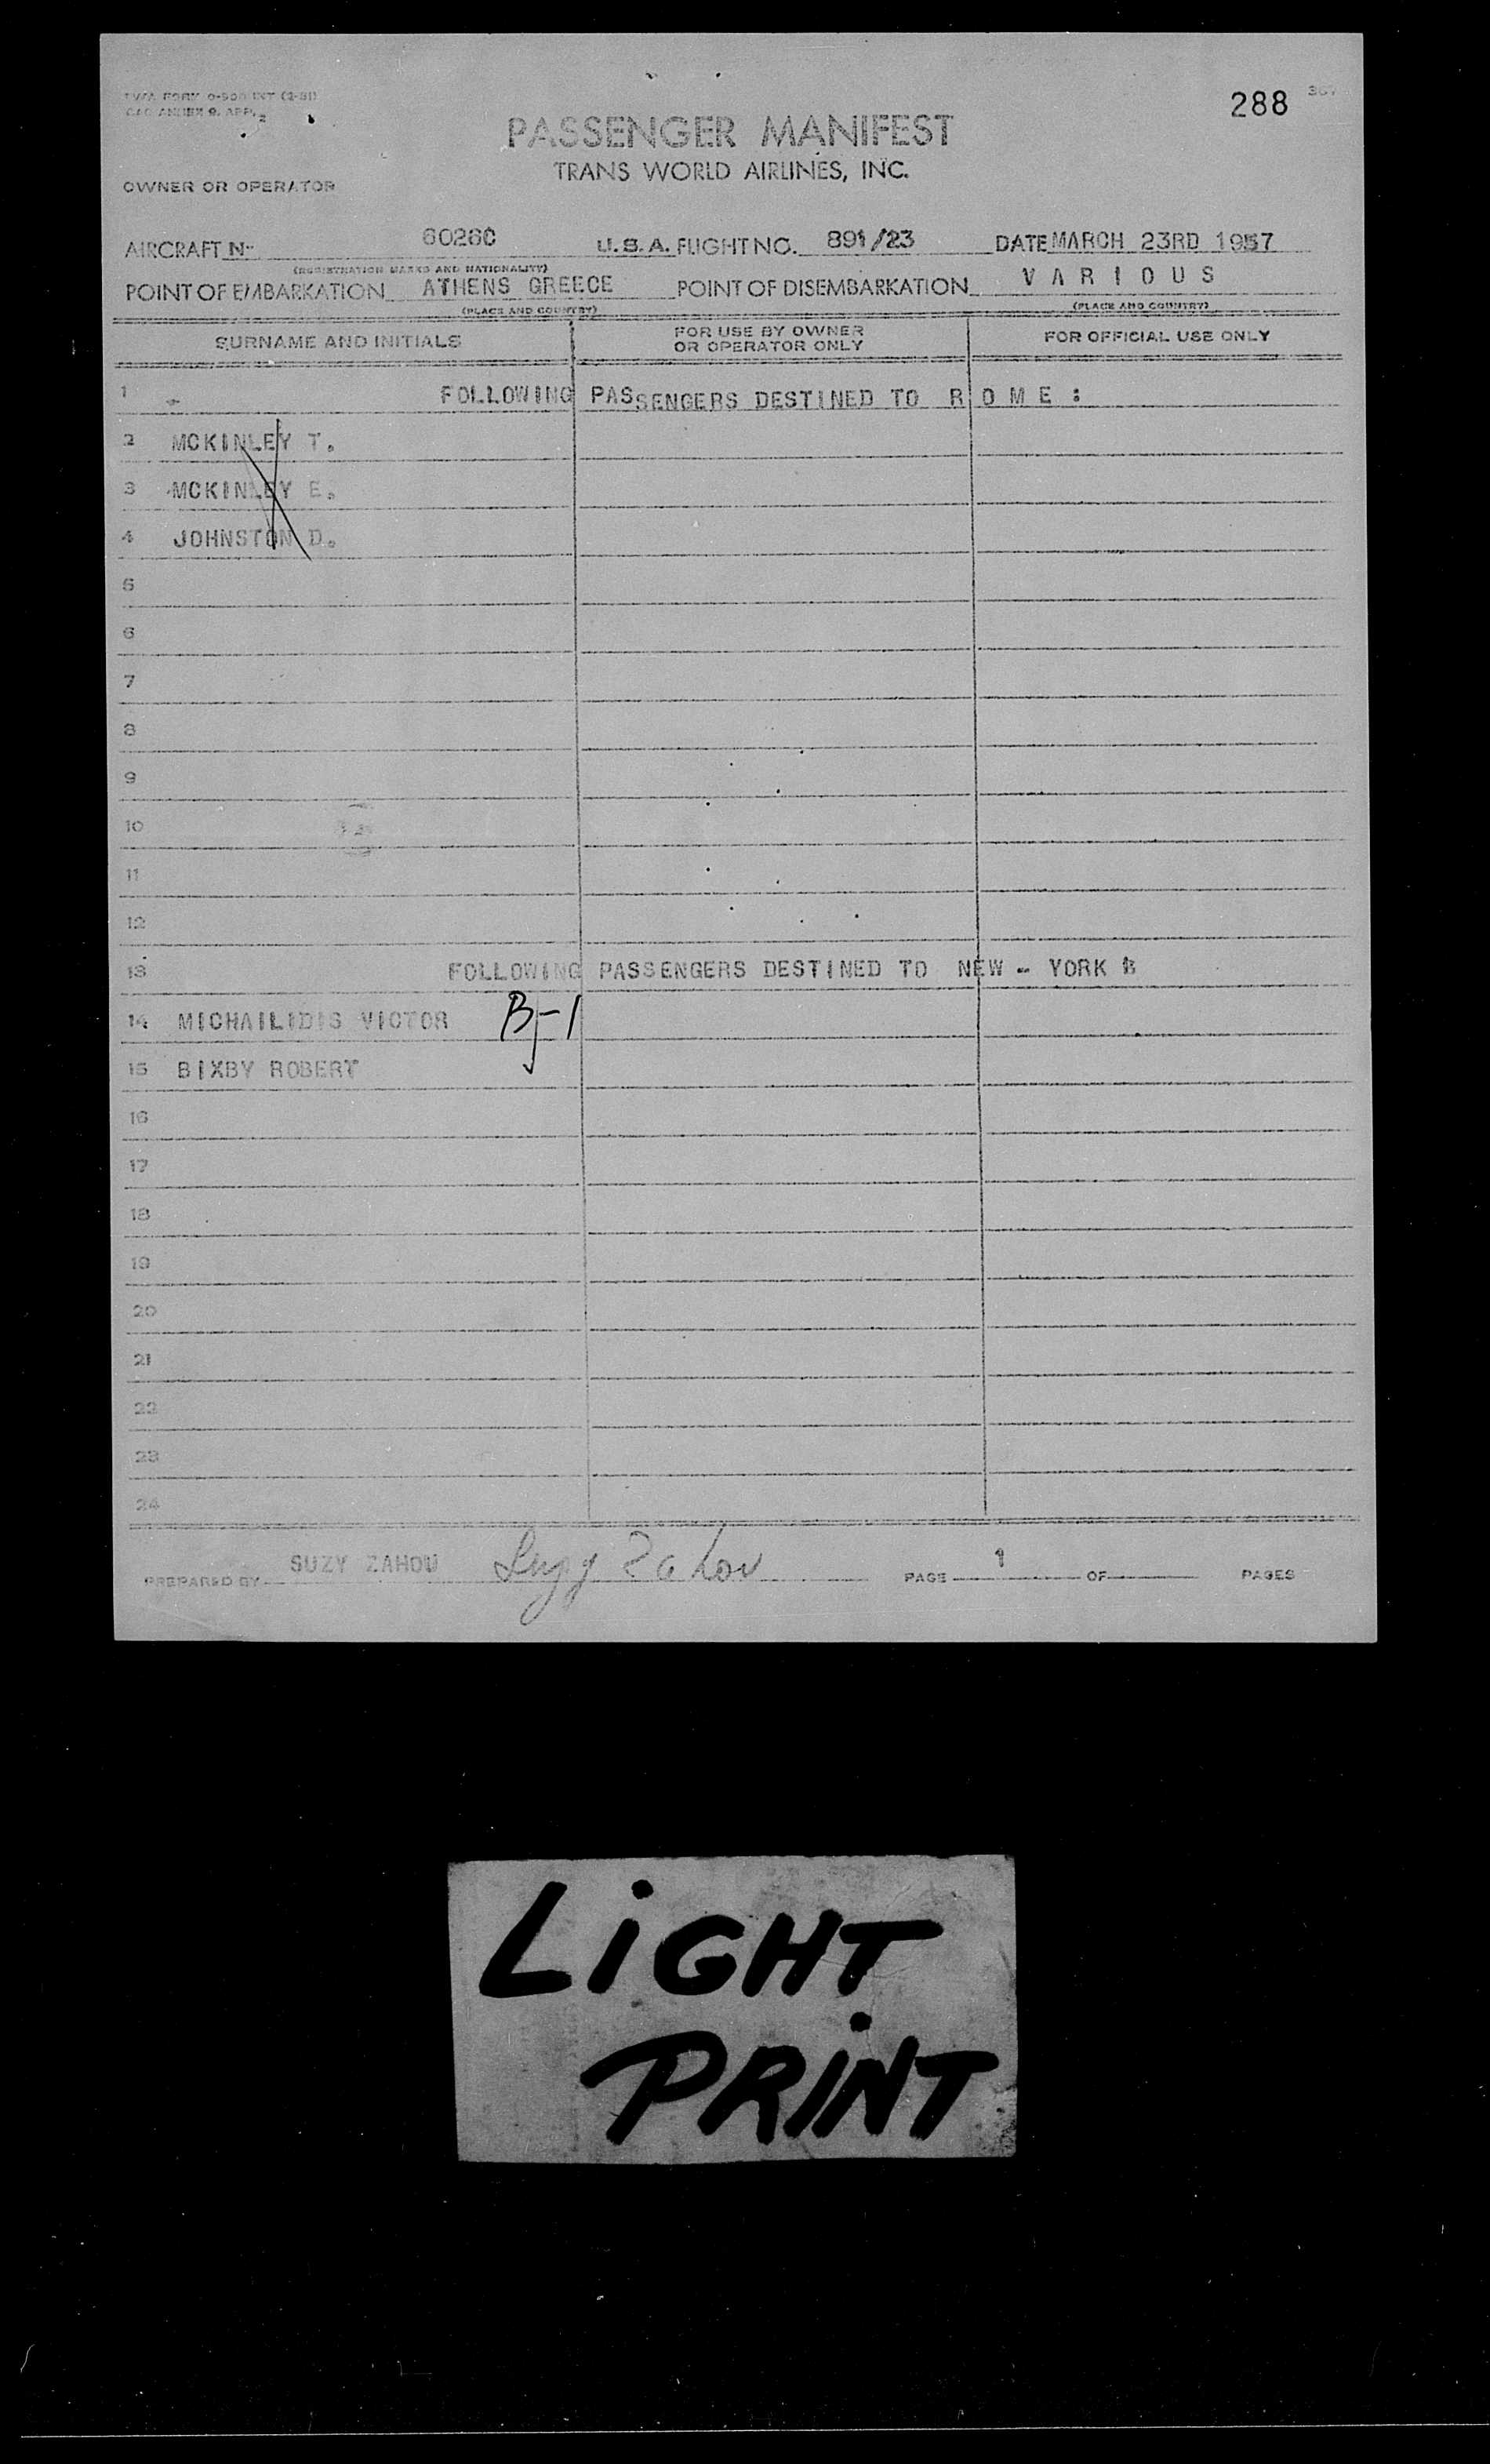 TWA FORM O-900 INT (2-51)
288
CAO ANNEX 9, APP. 2
PASSENGER MANIFEST
TRANS WORLD AIRLINES, INC.
OWNER OR OPERATOR
AIRCRAFT N- 6026C U.S.A. FLIGHT NO. 891/23 DATE MARCH 23RD 1957
(REGISTRATION MARKS AND NATIONALITY)
POINT OF EMBARKATION ATHENS GREECE POINT OF DISEMBARKATION V A R I O U S
(PLACE AND COUNTRY) (PLACE AND COUNTRY)
SURNAME AND INITIALS FOR USE BY OWNER OR OPERATOR ONLY FOR OFFICIAL USE ONLY
1 FOLLOWING PASSENGERS DESTINED TO R O M E :
2 MCKINLEY T.
3 MCKINLEY E.
4 JOHNSTON D.
5
6
7
8
9
10
11
12
13 FOLLOWING PASSENGERS DESTINED TO NEW - YORK
14 MICHAILIDIS VICTOR B-1
15 BIXBY ROBERT
16
17
18
19
20
21
22
23
24
PREPARED BY SUZY ZAHOU Suzy Zahou PAGE 1 OF PAGES
LIGHT
PRINT